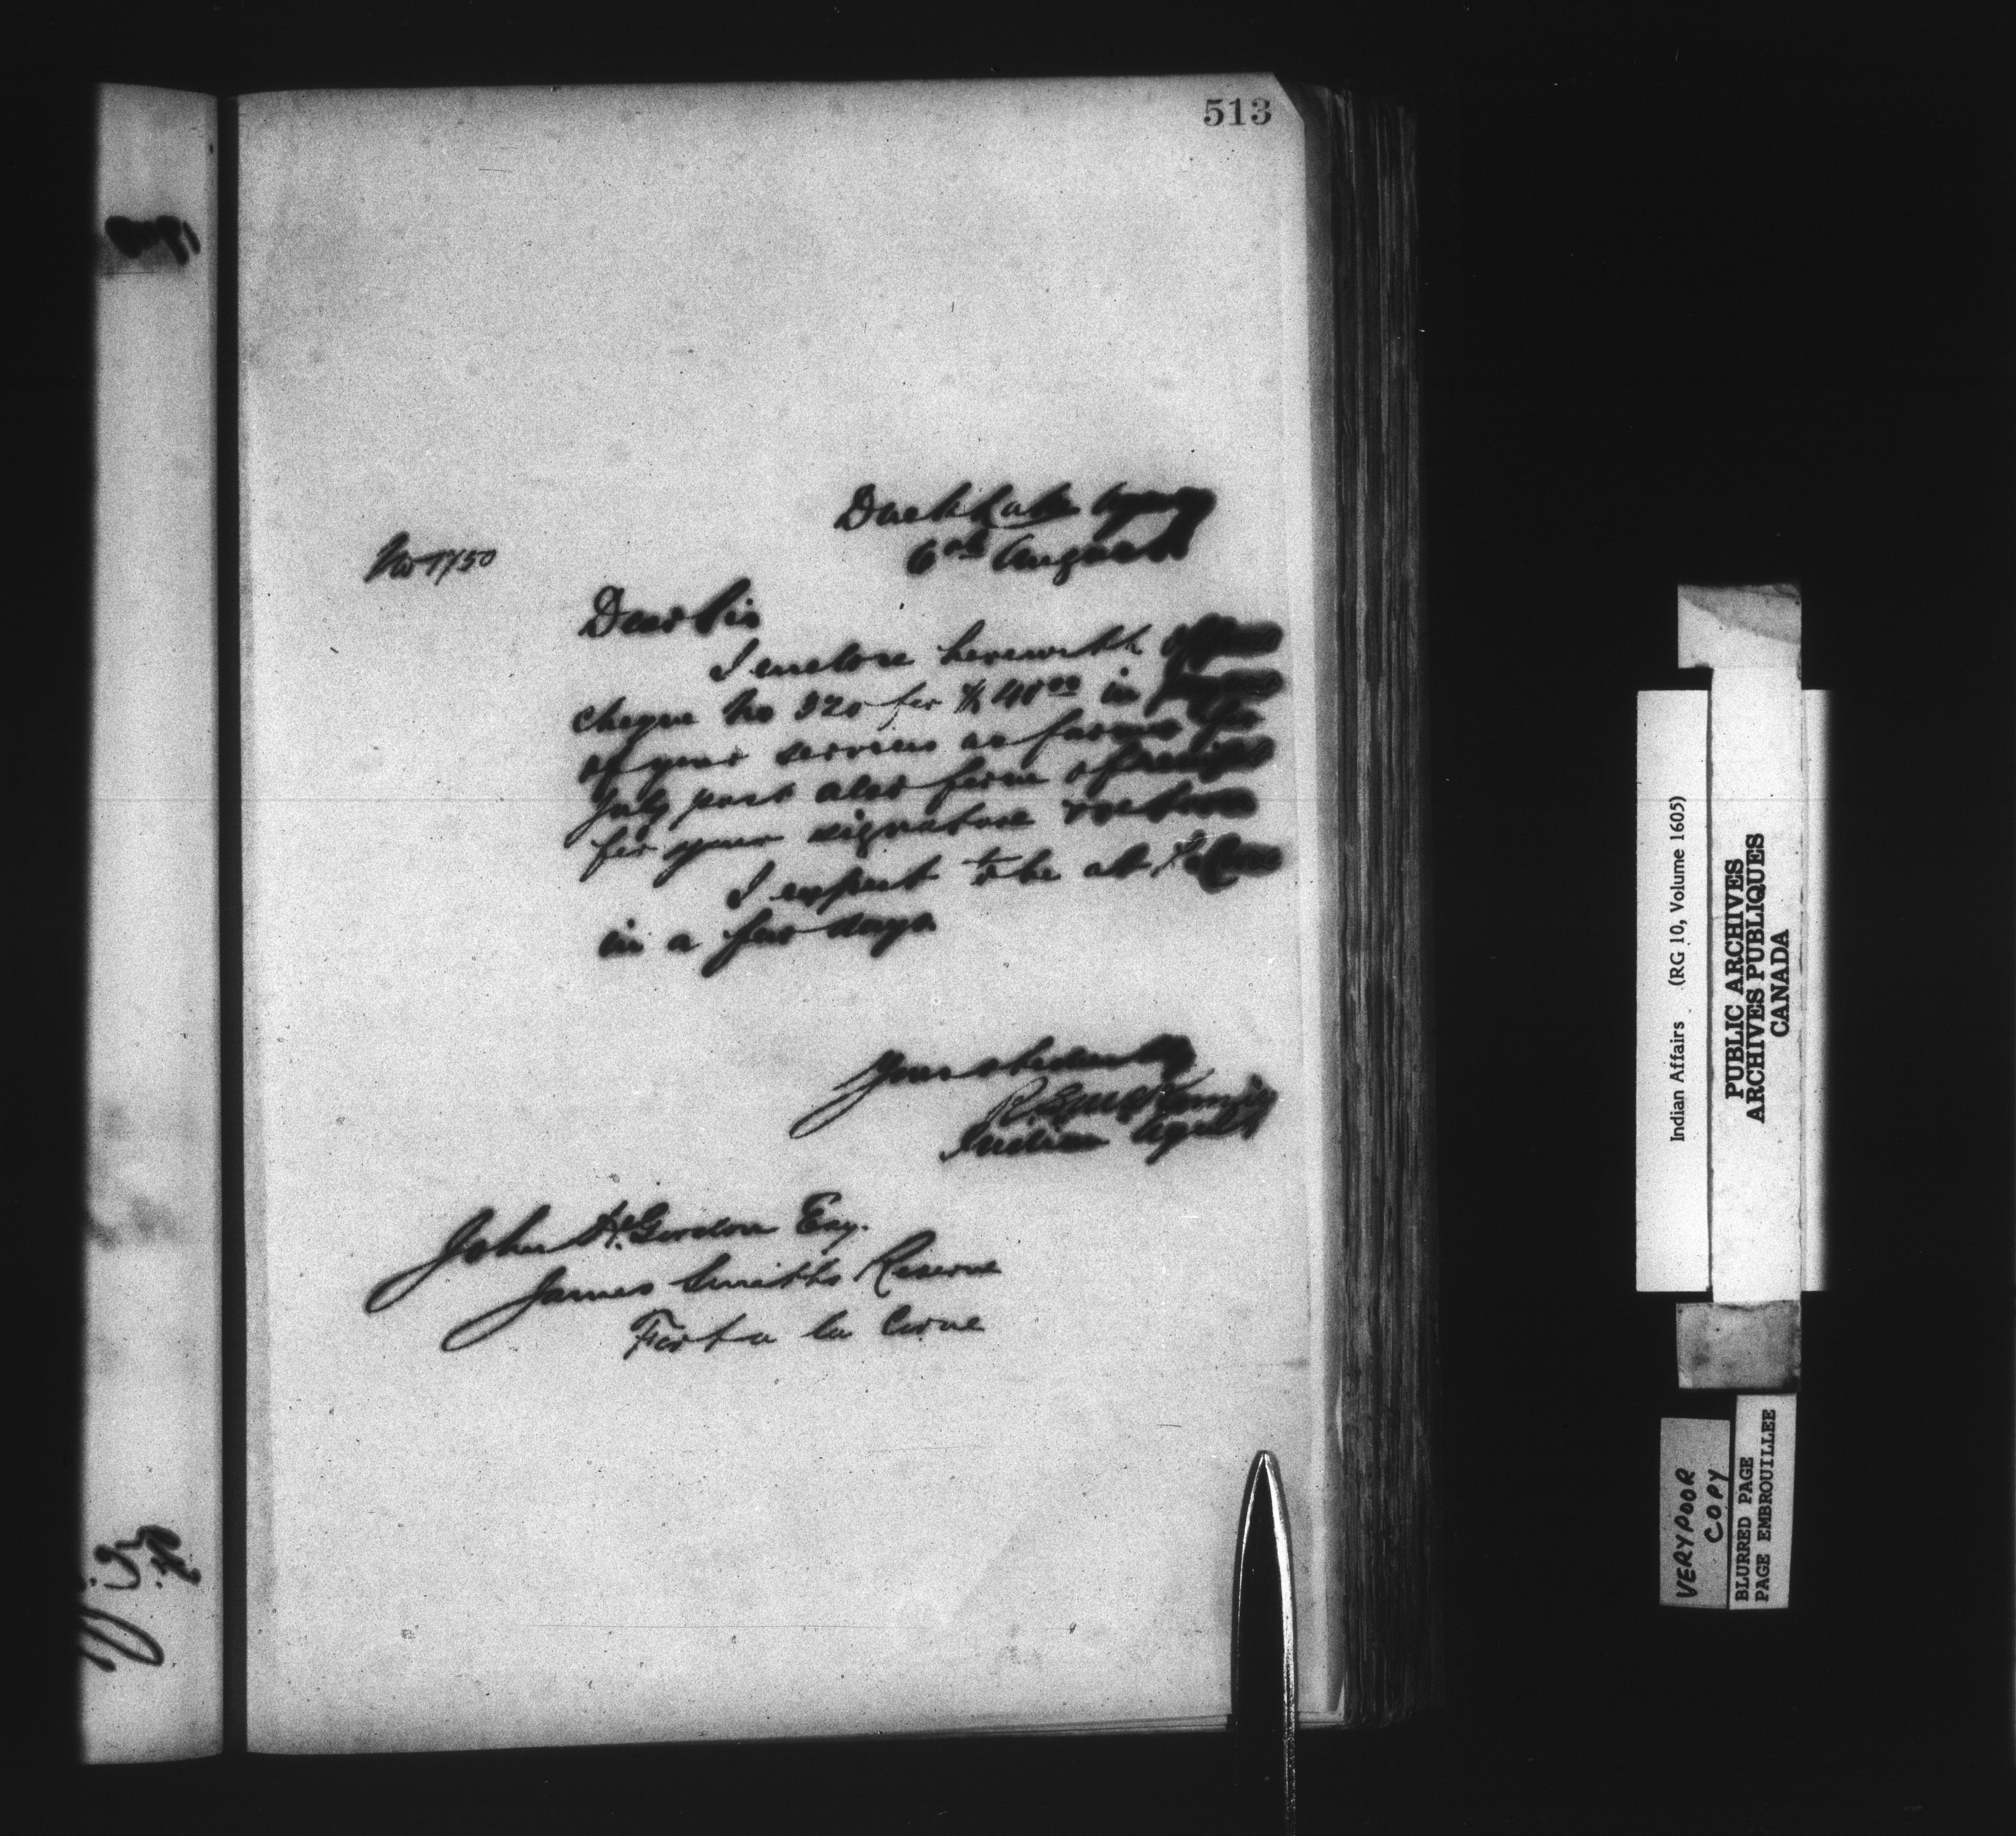 513
Duck Lake Agency
6th August
No 1750
Dear Sir
I enclose herewith
cheque No 320 for $40.00 in
of your services as farmer for
July past also form of receipt
for your signature & return
I expect to be at
in a few days
Your obediently
R.S. McKenzie
Indian Agent
John H. Gordon Esq.
James Smiths Reserve
Fort a la Corne
Indian Affairs (RG 10, Volume 1605)
PUBLIC ARCHIVES
ARCHIVES PUBLIQUES
CANADA
VERY POOR
COPY
BLURRED PAGE
PAGE EMBROUILLEE